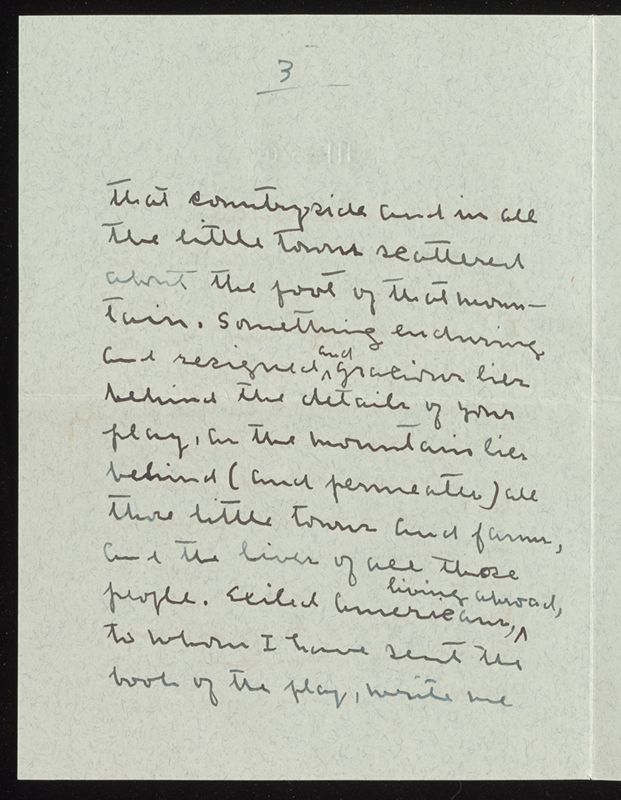 3
that countryside and in all
the little towns scattered
about the foot of that moun-
tain. Something enduring
and resigned and gracious lies
behind the details of your
play, as the mountain lies
behind (and permeates) all
those little towns and farms,
and the lives of all those
people. Exiled Americans, living abroad,
to whom I have sent the
book of the play, write me